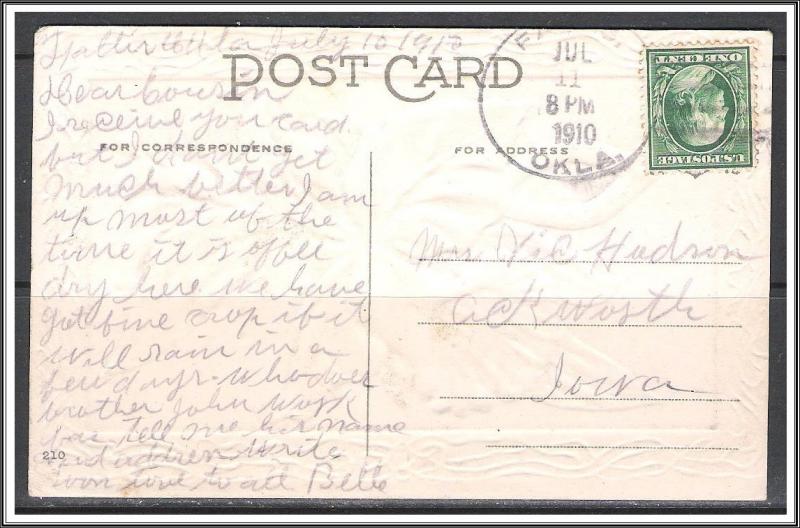 Okla July 10 1910
POST CARD
Dear Cousin
I receive you card
but I dont get
much better I am
up most of the
time it is offel
dry here we have
got fine crop if it
will rain in a
few days. who does
brother John work
for tell me his name
and addres write
soon love to all Belle
FOR CORRESPONDENCE
210
JUL
11
8 PM
1910
OKLA.
U.S. POSTAGE
ONE CENT
FOR ADDRESS
Mrs Hudson
Ackworth
Iowa